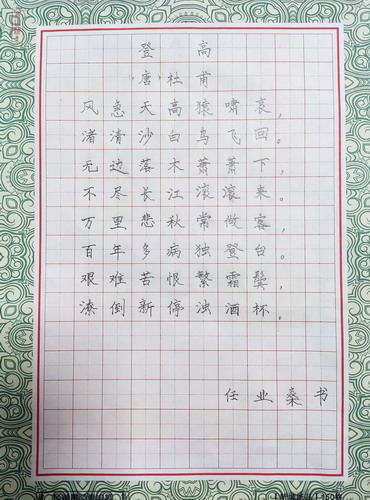 登高
（唐）杜甫
风急天高猿啸哀，
渚清沙白鸟飞回。
无边落木萧萧下，
不尽长江滚滚来。
万里悲秋常做客，
百年多病独登台。
艰难苦恨繁霜鬓，
潦倒新停浊酒杯。
任业桑书